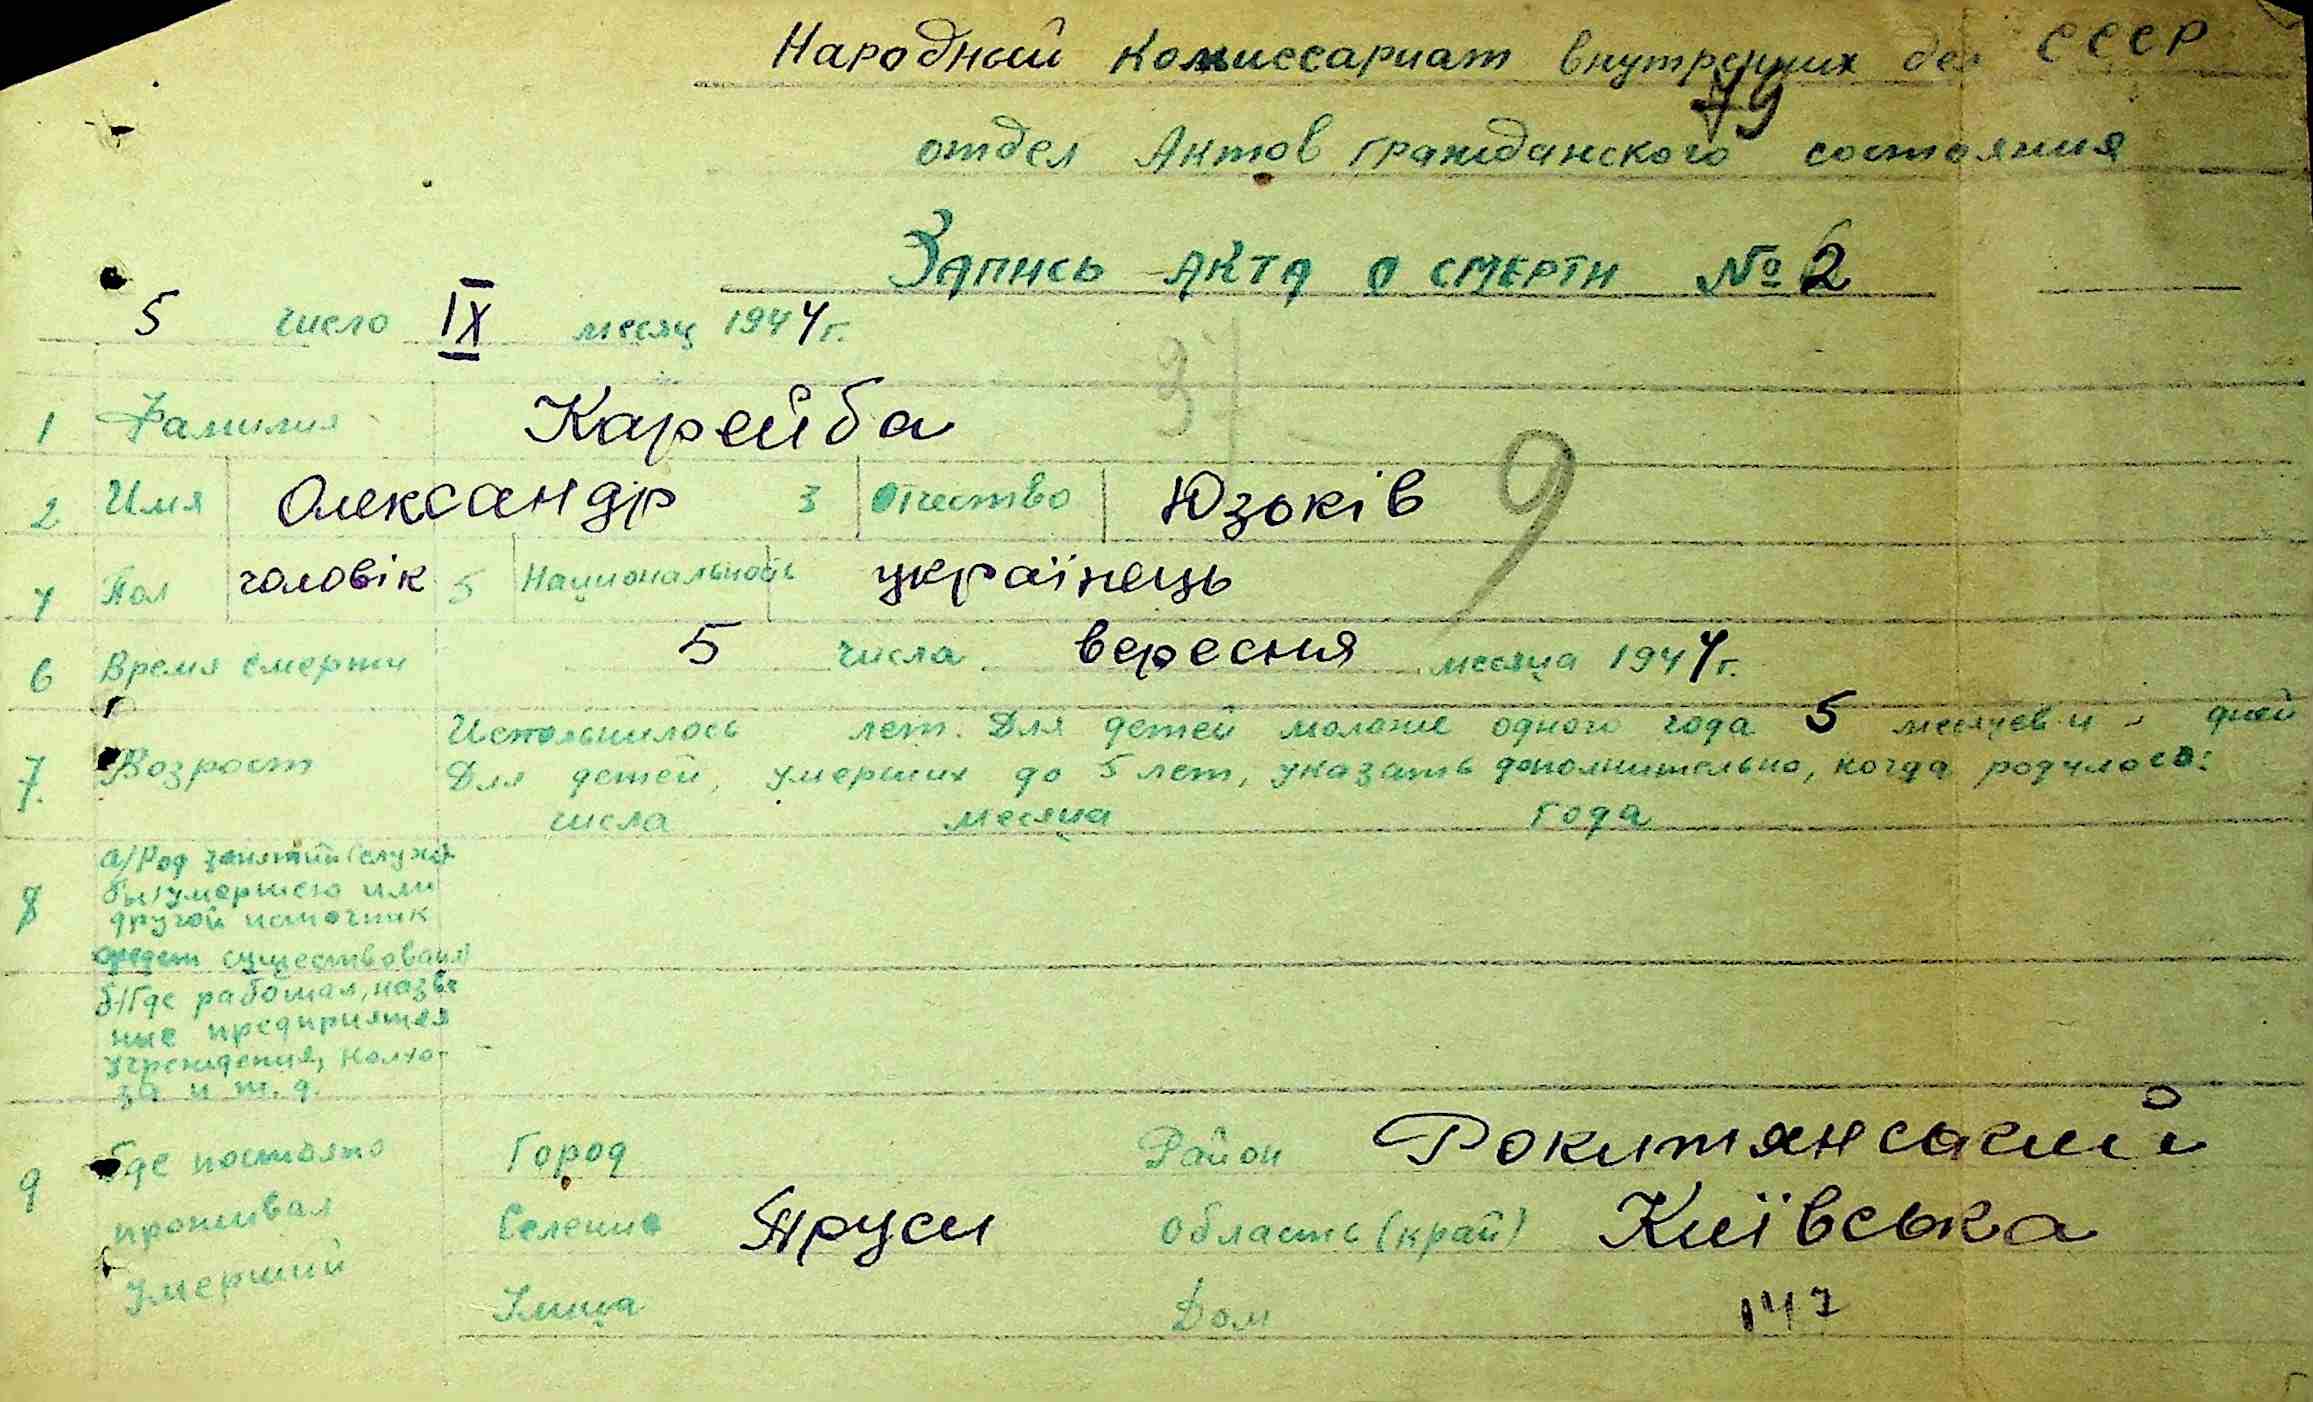 Народный комиссариат внутренних дел СССР
79
отдел Актов гражданского состояния
Запись акта о смерти № 2
5 число IX месяц 1944 г.
37
1 Фамилия Карейба
9
2 Имя Олександр 3 Отчество Юзьків
4 Пол чоловік 5 Национальность українець
6 Время смерти 5 числа вересня месяца 1944 г.
7. Возраст Исполнилось лет. Для детей моложе одного года 5 месяцев и - дней
Для детей, умерших до 5 лет, указать дополнительно, когда родился:
числа месяца года
8 а/Род занятий (служ-
бы) умершего или
другой источник
средств существования
б/Где работал, назва
ние предприятия
учреждения, колхо-
за и т. д.
9 Где постоянно Город Район Рокитянський
проживал Селение Труси Область (край) Київська
умерший Улица Дом 147